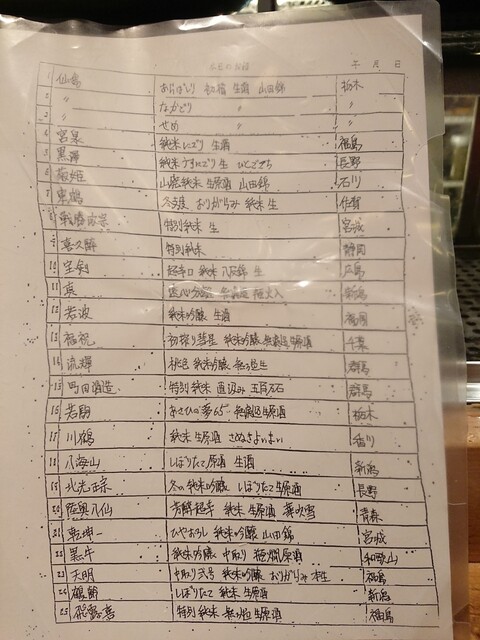 年 月 日
1 仙禽 あらばしり 初槽 生酒 山田錦 栃木
2 〃 なかどり 〃 〃
3 〃 せめ 〃 〃
4 宮泉 純米にごり 生酒 福島
5 黒澤 純米うすにごり 生 ひとごこち 長野
6 山廃純米 生原酒 山田錦 石川
7 東鶴 おりがらみ 純米 生 佐賀
8 戦勝政宗 特別純米 生 宮城
9 喜久酔 特別純米 静岡
10 宝剣 超辛口 純米 八反錦 生 広島
11 新潟
12 若波 純米吟醸 生酒 福岡
13 福祝 初搾り彗星 純米吟醸 無濾過生原酒 千葉
14 流輝 桃色 純米吟醸 無ろ過生 群馬
15 町田酒造 特別純米 直汲み 五百万石 群馬
16 若駒 あさひの夢65 無濾過生原酒 栃木
17 川鶴 純米 生原酒 さぬきよいまい 香川
18 八海山 しぼりたて原酒 生酒 新潟
19 北光正宗 純米吟醸 しぼりたて生原酒 長野
20 陸奥八仙 芳醇超辛 純米 生原酒 華吹雪 青森
21 乾坤一 ひやおろし 純米吟醸 山田錦 宮城
22 黒牛 純米吟醸 中取り 無濾過原酒 和歌山
23 天明 中取り弐号 純米吟醸 おりがらみ 本生 福島
24 鶴齢 しぼりたて 純米 生原酒 新潟
25 飛露喜 特別純米 無ろ過 生原酒 福島